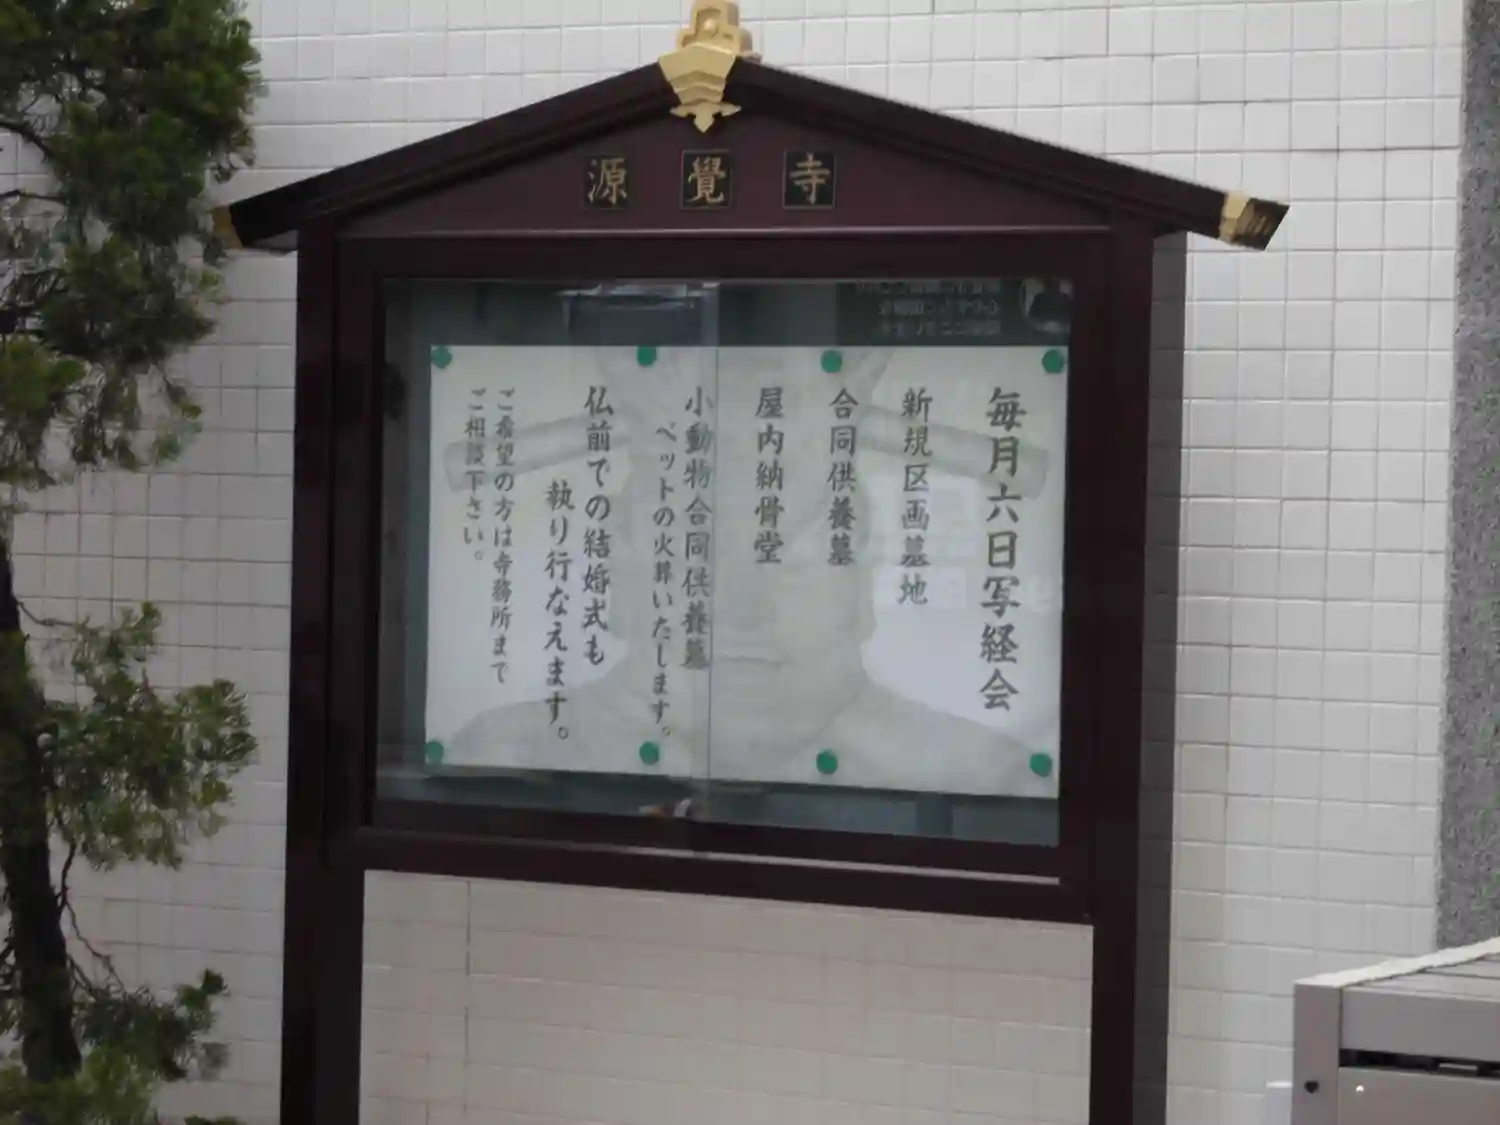 源覺寺
毎月六日写経会
新規区画墓地
合同供養墓
屋内納骨堂
小動物合同供養墓
ペットの火葬いたします。
仏前での結婚式も
執り行なえます。
ご希望の方は寺務所まで
ご相談下さい。